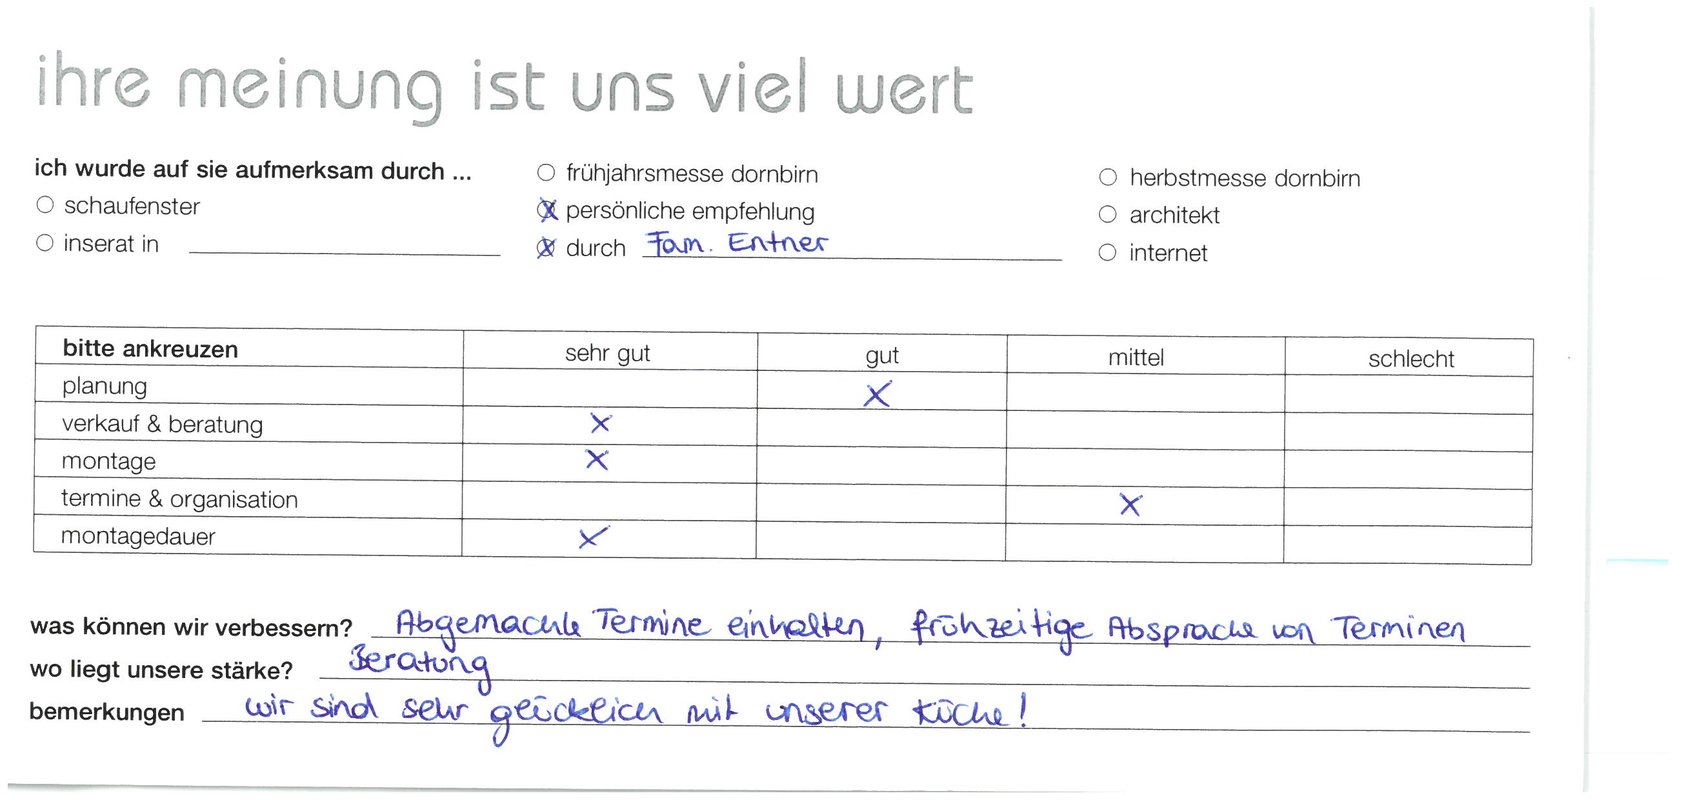 ihre meinung ist uns viel wert
ich wurde auf sie aufmerksam durch ...
○ schaufenster
○ inserat in
○ frühjahrsmesse dornbirn
☒ persönliche empfehlung
☒ durch Fam. Entner
○ herbstmesse dornbirn
○ architekt
○ internet
bitte ankreuzen sehr gut gut mittel schlecht
planung X
verkauf & beratung X
montage X
termine & organisation X
montagedauer X
was können wir verbessern? Abgemachte Termine einhalten, frühzeitige Absprache von Terminen
wo liegt unsere stärke? Beratung
bemerkungen wir sind sehr glücklich mit unserer Küche!